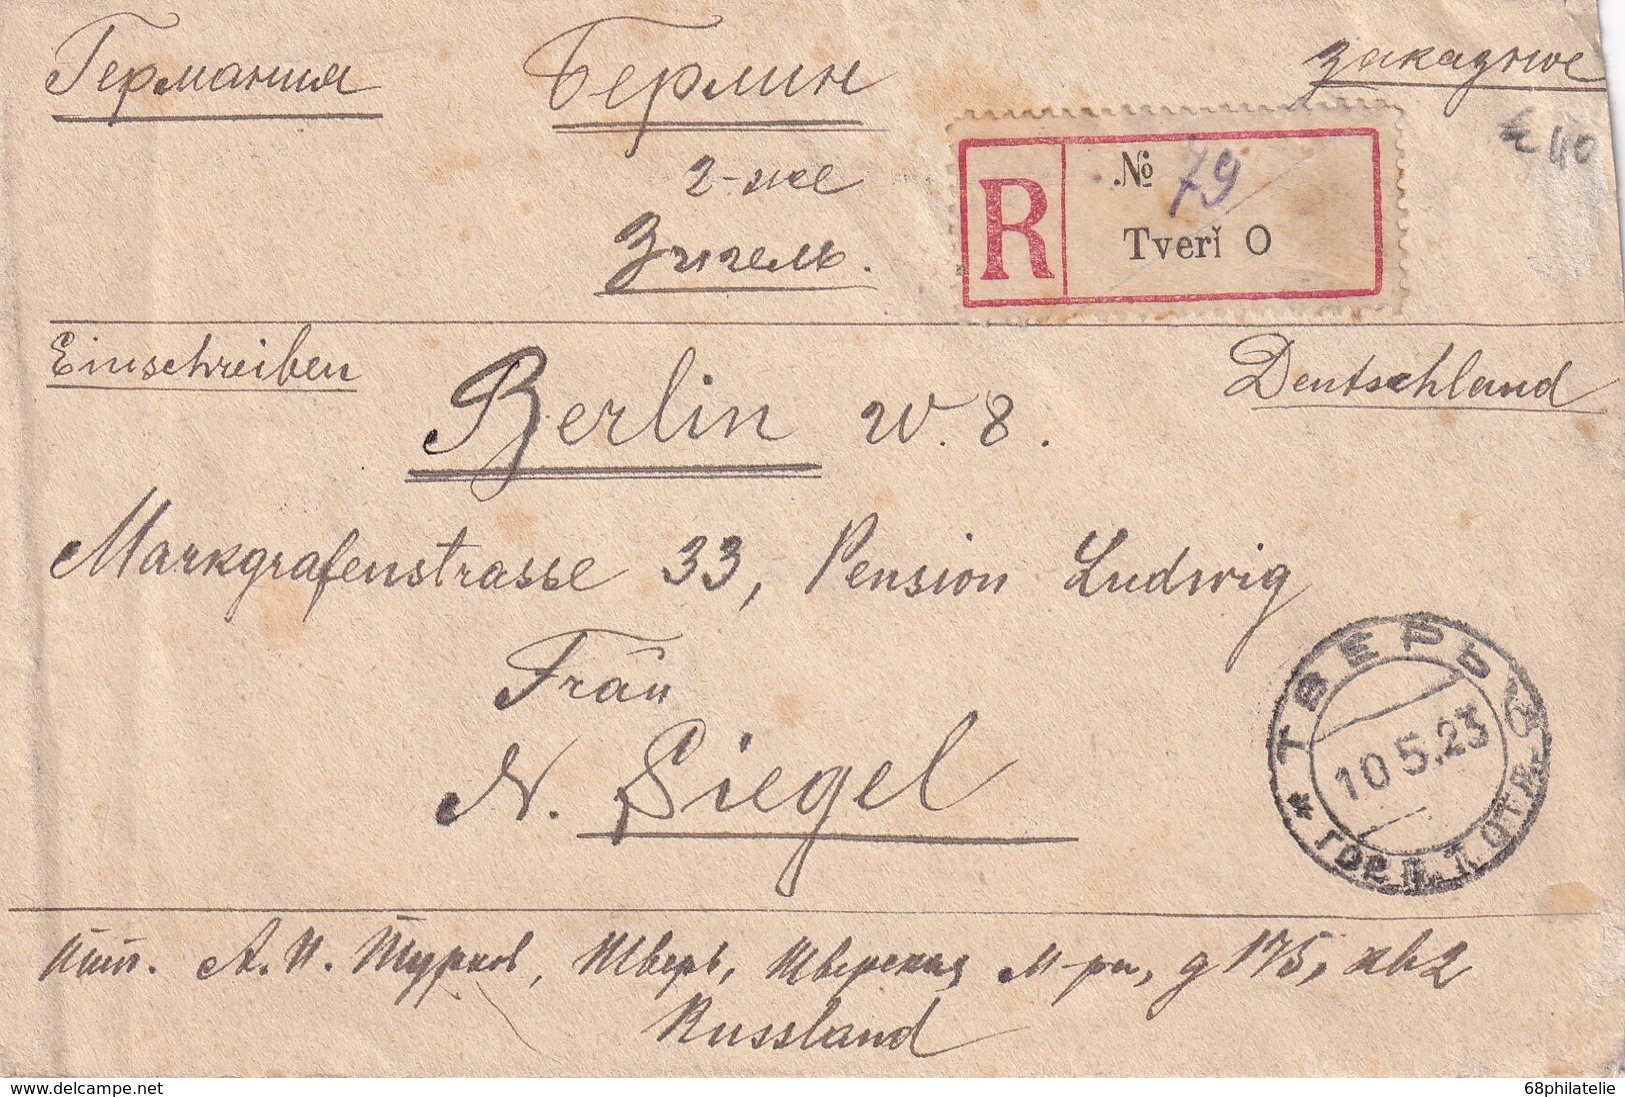 Германия Берлин заказное
г-же
Зигель.
€ 40
R № 79
Tverĭ O
Einschreiben Deutschland
Berlin W. 8.
Markgrafenstrasse 33, Pension Ludwig
Fräu
N. Siegel
ТВЕРЬ
10.5.23
ГОР. П. Т. ОТД.
А. И. Турков, Тверь, Тверская М-ра, д 175, кв 2
Russland
delcampe.net
68philatelie